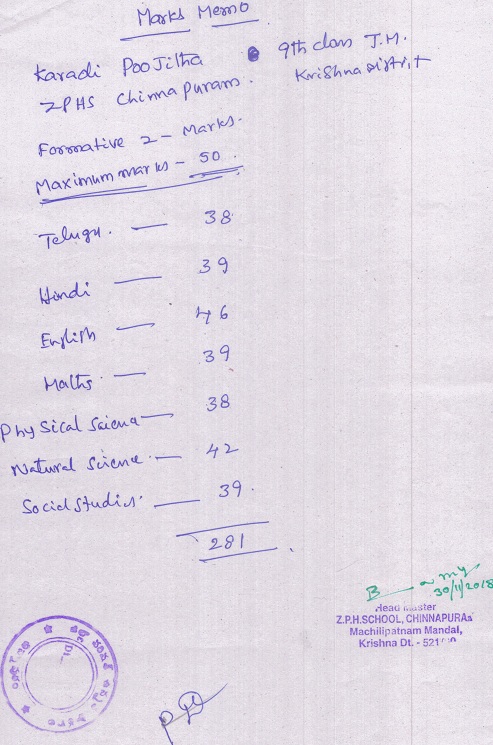 Marks Memo
Karadi PooJitha
9th class T.M.
ZPHS Chinnapuram.
Krishna District
Formative 2 - Marks.
Maximum marks - 50.
Telugu. — 38
Hindi — 39
English — 46
Maths. — 39
Physical Science — 38
Natural Science. — 42
Social Studies. — 39.
281
30/11/2018
Head Master
Z.P.H.SCHOOL, CHINNAPURAM
Machilipatnam Mandal,
Krishna Dt. - 521